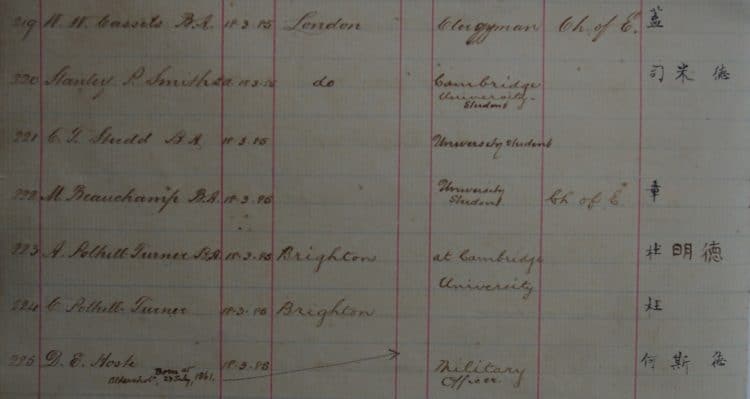 219 W. W. Cassels B.A. 18.3.85 London Clergyman Ch of E. 蓋
220 Stanley P. Smith B.A. 18.3.85 do Cambridge 司米德
University
Student
221 C. T. Studd B A 18.3.85 University Student
222 M. Beauchamp B.A. 18.3.85 University Ch of E 章
Student
223 A. Polhill-Turner B.A. 18.3.85 Brighton at Cambridge 杜明德
University
224 C Polhill-Turner 18.3.85 Brighton 杜
225 D. E. Hoste 18.3.85 Military 何斯德
Born at
Aldershot, 23 July, 1861. Officer.